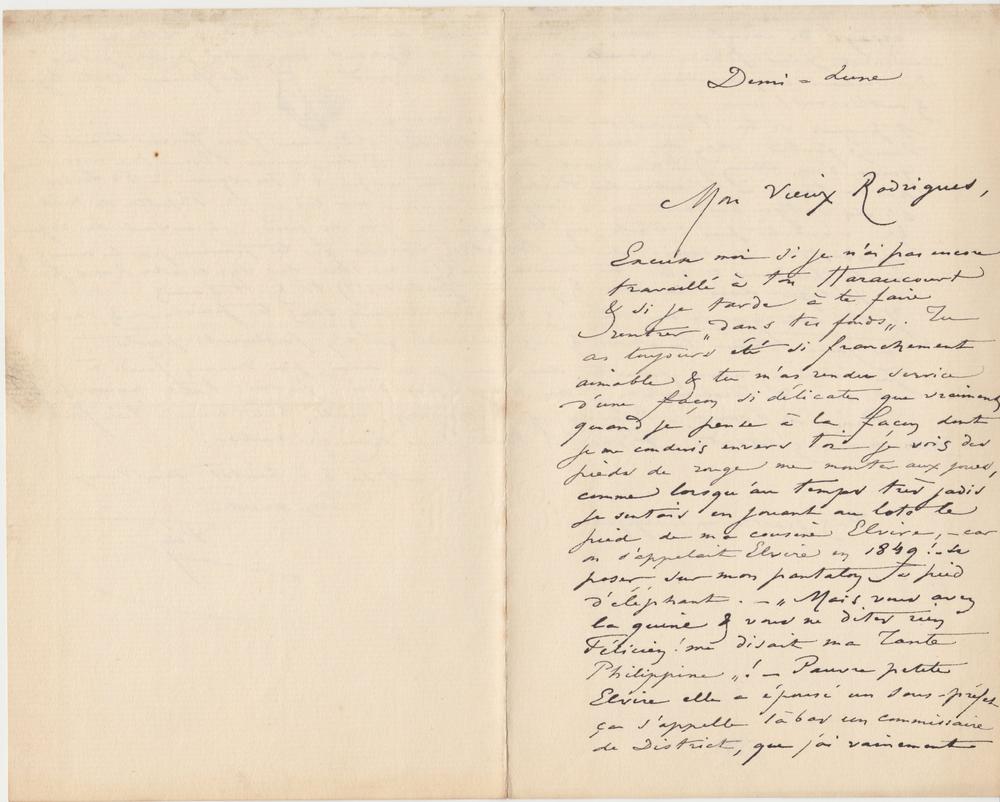 Demi-Lune
Mon Vieux Rodrigues,
Excuse moi si je n'ai pas encore
travaillé à ton Haraucourt
& si je tarde à te faire
rentrer „dans tes fonds„. Tu
as toujours été si franchement
aimable & tu m'as rendu service
d'une façon si délicate que vraiment
quand je pense à la façon dont
je me conduis envers toi je vois des
pieds de rouge me monter aux joues,
comme lorsqu'au temps très jadis
je sentais en jouant au loto le
pied de ma cousine Elvire, - car
on s'appelait Elvire en 1849! - se
poser sur mon pantalon à pied
d'éléphant. - „Mais vous avez
la quine & vous ne dites rien
Félicien! me disait ma Tante
Philippine„! - Pauvre petite
Elvire elle a épousé un sous-préfet
ça s'appelle là bas un commissaire
de District, que j'ai vainement